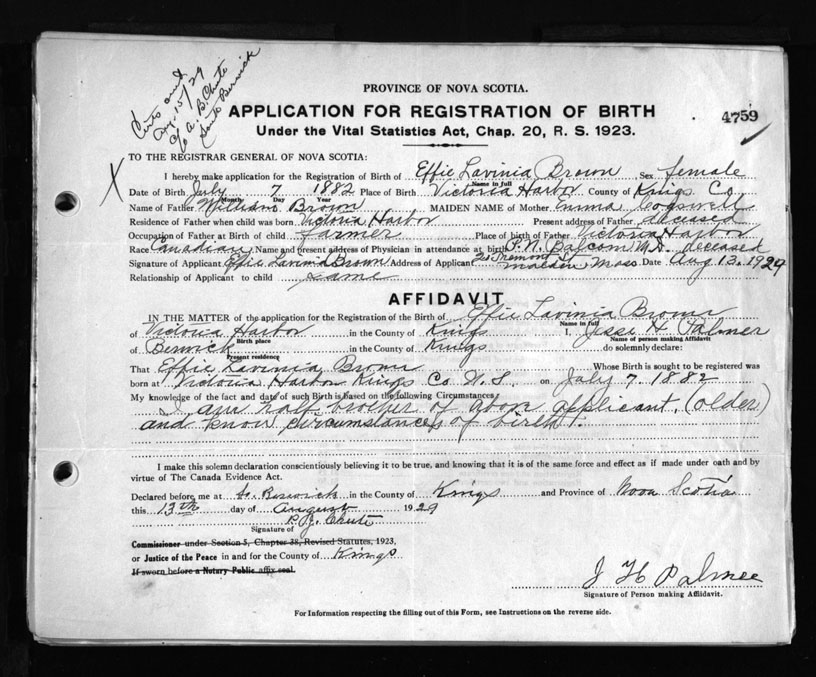 Certs and
Aug. 15/29
c/o A. B. Chute
South Berwick
PROVINCE OF NOVA SCOTIA.
APPLICATION FOR REGISTRATION OF BIRTH
4759
Under the Vital Statistics Act, Chap. 20, R. S. 1923.
TO THE REGISTRAR GENERAL OF NOVA SCOTIA:
X
I hereby make application for the Registration of Birth of Effie Lavinia Brown Sex female
Name in full
Date of Birth July 7 1882 Place of Birth Victoria Harbor County of Kings Co
Month Day Year
Name of Father William Brown MAIDEN NAME of Mother Emma Cogswell
Residence of Father when child was born Victoria Harbor Present address of Father deceased
Occupation of Father at Birth of child farmer Place of birth of Father Victoria Harbor
Race Canadian Name and present address of Physician in attendance at birth P. N. Balcom M.D. deceased
Signature of Applicant Effie Lavinia Brown Address of Applicant Tremont St Malden, Mass Date Aug 13. 1929
Relationship of Applicant to child same
AFFIDAVIT
IN THE MATTER of the application for the Registration of the Birth of Effie Lavinia Brown
Name in full
of Victoria Harbor in the County of Kings I, Jesse H Palmer
Birth place Name of person making Affidavit
of Berwick in the County of Kings do solemnly declare:
Present residence
That Effie Lavinia Brown Whose Birth is sought to be registered was
born at Victoria Harbor Kings Co N.S. on July 7. 1882
My knowledge of the fact and date of such Birth is based on the following Circumstances:
I am half brother of above applicant, (older)
and know circumstances of birth.
I make this solemn declaration conscientiously believing it to be true, and knowing that it is of the same force and effect as if made under oath and by
virtue of The Canada Evidence Act.
Declared before me at So. Berwick in the County of Kings and Province of Nova Scotia
this 13th day of August 1929
Chute
Signature of
Commissioner under Section 5, Chapter 38, Revised Statutes, 1923,
or Justice of the Peace in and for the County of Kings
If sworn before a Notary Public affix seal.
J H Palmer
Signature of Person making Affidavit.
For Information respecting the filling out of this Form, see Instructions on the reverse side.